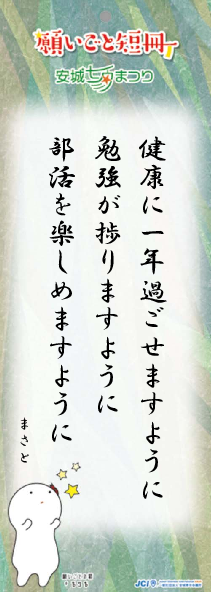 願いごと短冊
安城七夕まつり
健康に一年過ごせますように
勉強が捗りますように
部活を楽しめますように
まさと
JCI